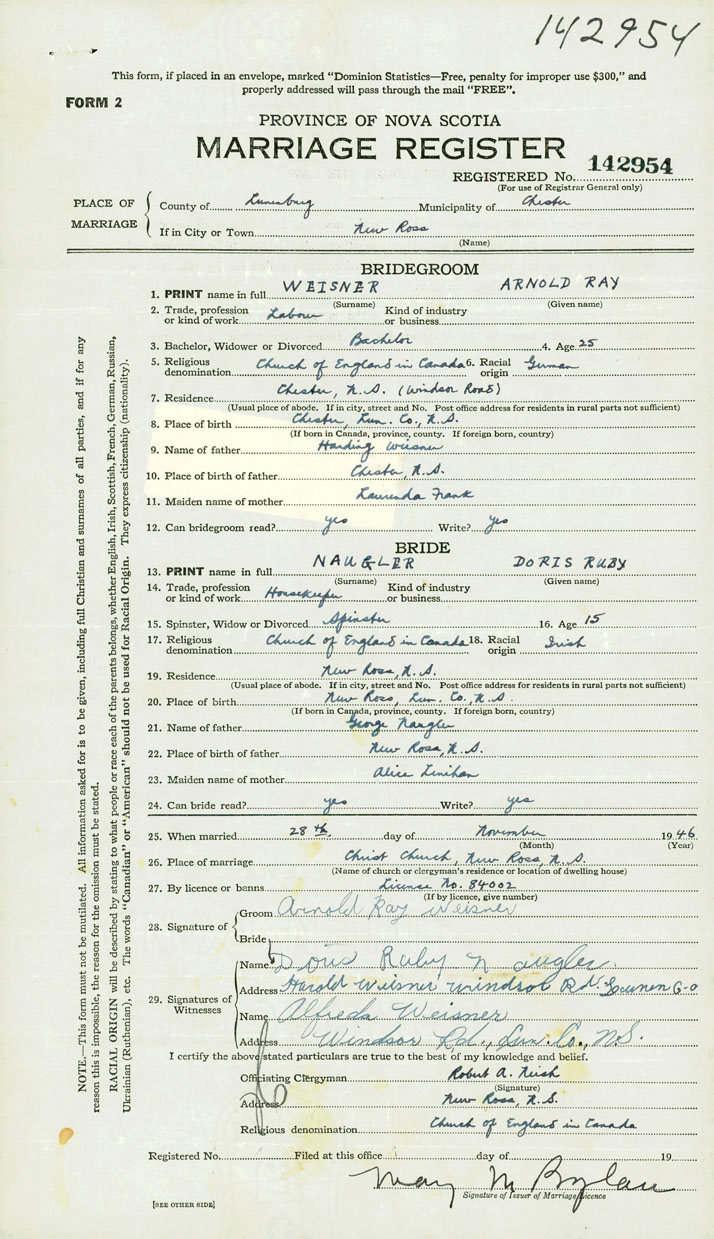 142954
This form, if placed in an envelope, marked "Dominion Statistics—Free, penalty for improper use $300," and
properly addressed will pass through the mail "FREE".
FORM 2
PROVINCE OF NOVA SCOTIA
MARRIAGE REGISTER
REGISTERED No. 142954
(For use of Registrar General only)
PLACE OF MARRIAGE
County of Lunenburg Municipality of Chester
If in City or Town New Ross
(Name)
BRIDEGROOM
1. PRINT name in full WEISNER ARNOLD RAY
(Surname) (Given name)
2. Trade, profession or kind of work Labour Kind of industry or business
3. Bachelor, Widower or Divorced Bachelor 4. Age 25
5. Religious denomination Church of England in Canada 6. Racial origin German
7. Residence Chester, N.S. (Windsor Road)
(Usual place of abode. If in city, street and No. Post office address for residents in rural parts not sufficient)
8. Place of birth Chester, Lun. Co., N.S.
(If born in Canada, province, county. If foreign born, country)
9. Name of father Harding Weisner
10. Place of birth of father Chester, N.S.
11. Maiden name of mother Laurenda Frank
12. Can bridegroom read? yes Write? yes
BRIDE
13. PRINT name in full NAUGLER DORIS RUBY
(Surname) (Given name)
14. Trade, profession or kind of work Housekeeper Kind of industry or business
15. Spinster, Widow or Divorced Spinster 16. Age 15
17. Religious denomination Church of England in Canada 18. Racial origin Irish
19. Residence New Ross, N.S.
(Usual place of abode. If in city, street and No. Post office address for residents in rural parts not sufficient)
20. Place of birth New Ross, Lun. Co., N.S.
(If born in Canada, province, county. If foreign born, country)
21. Name of father George Naugler
22. Place of birth of father New Ross, N.S.
23. Maiden name of mother Alice Linihan
24. Can bride read? yes Write? yes
25. When married 28th day of November 1946
(Month) (Year)
26. Place of marriage Christ Church, New Ross, N.S.
(Name of church or clergyman's residence or location of dwelling house)
27. By licence or banns License No. 84002
(If by licence, give number)
28. Signature of
Groom Arnold Ray Weisner
Bride
29. Signatures of Witnesses
Name Doris Ruby Naugler
Address Harold Weisner Windsor Rd. Lunen
Name Alfreda Weisner
Address Windsor Rd., Lun. Co., N.S.
I certify the above stated particulars are true to the best of my knowledge and belief.
Officiating Clergyman Robert A. Neish
(Signature)
Address New Ross, N.S.
Religious denomination Church of England in Canada
Registered No. Filed at this office day of 19
Mary M
Signature of Issuer of Marriage Licence
[SEE OTHER SIDE]
NOTE.—This form must not be mutilated. All information asked for is to be given, including full Christian and surnames of all parties, and if for any
reason this is impossible, the reason for the omission must be stated.
RACIAL ORIGIN will be described by stating to what people or race each of the parents belongs, whether English, Irish, Scottish, French, German, Russian,
Ukrainian (Ruthenian), etc. The words "Canadian" or "American" should not be used for Racial Origin. They express citizenship (nationality).